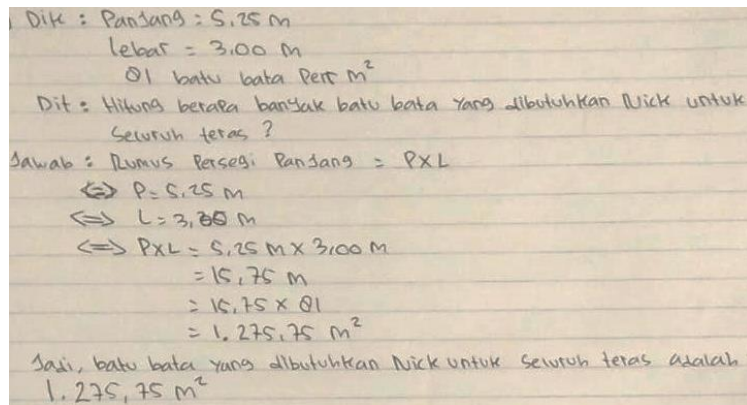 Dik : Panjang : 5,25 m
lebar = 3.00 m
81 batu bata Per m²
Dit : Hitung berapa banyak batu bata yang dibutuhkan Nick untuk
Seluruh teras ?
Jawab : Rumus Persegi Panjang = P×L
<=> P = 5,25 m
<=> L = 3,00 m
<=> P×L = 5,25 m × 3,00 m
= 15,75 m
= 15,75 × 81
= 1.275,75 m²
Jadi, batu bata yang dibutuhkan Nick untuk seluruh teras adalah
1.275,75 m²